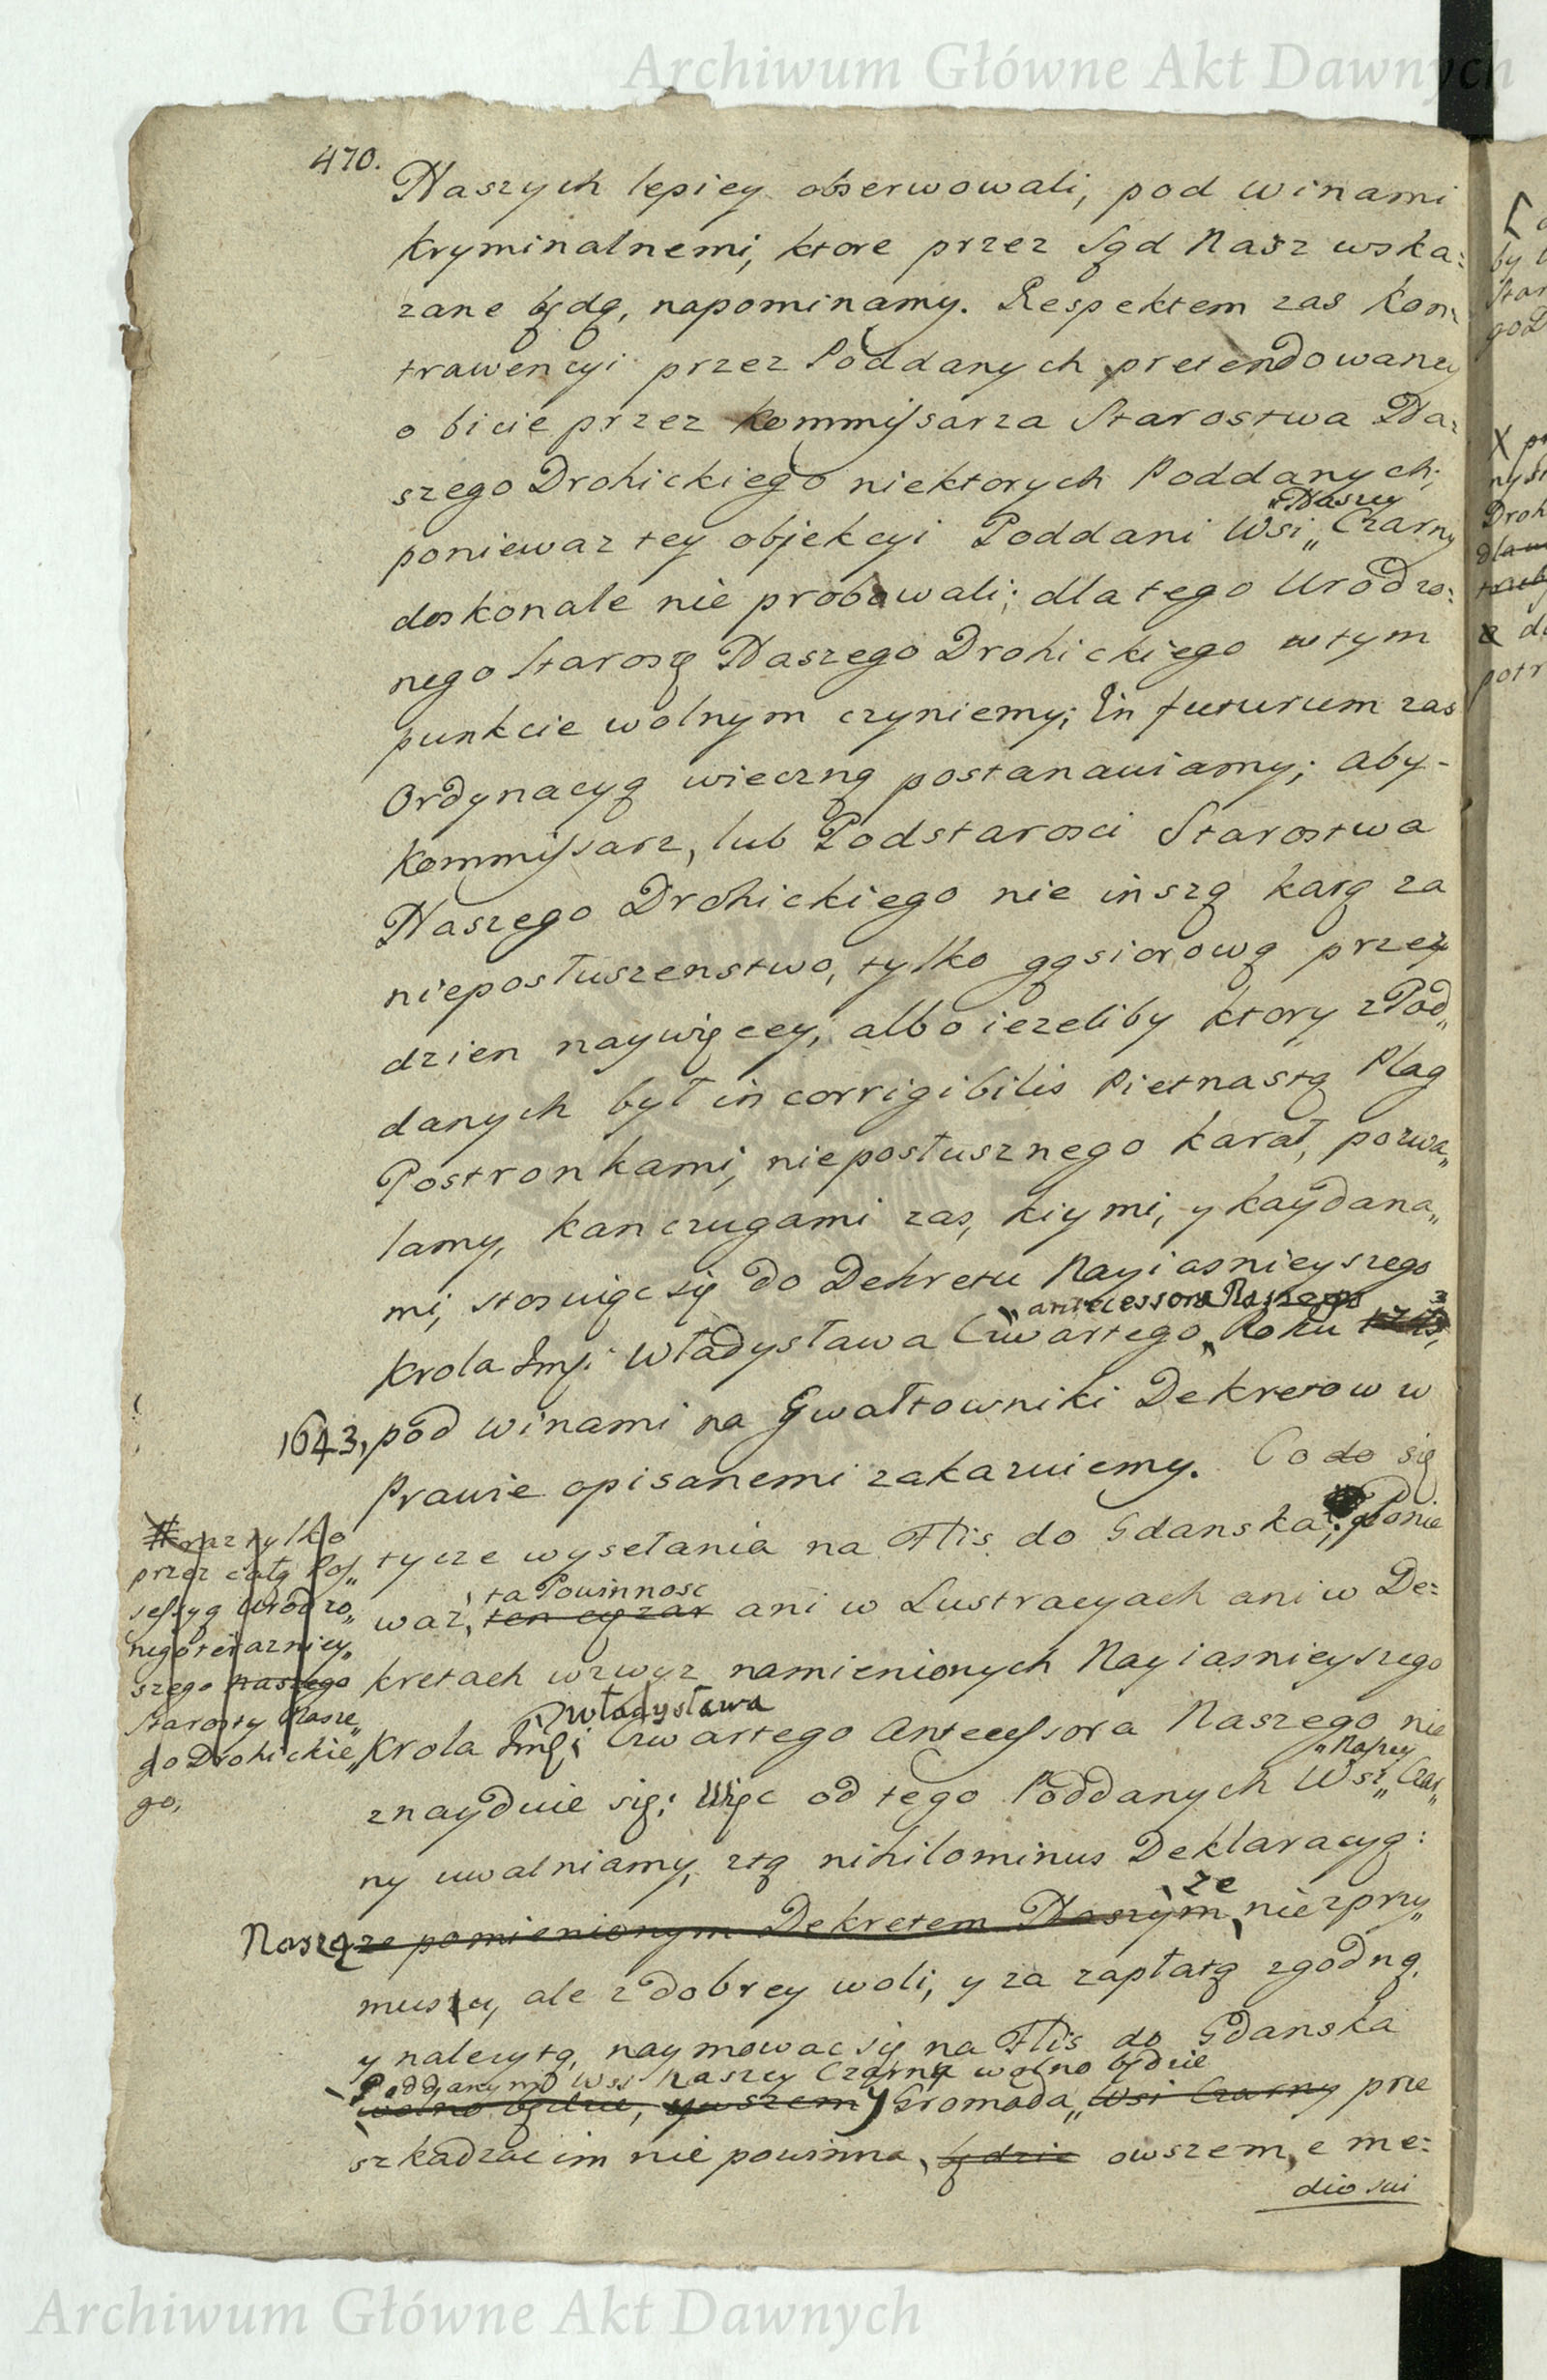 Archiwum Główne Akt Dawnych
470.
Naszych lepiey obserwowali, pod winami
kryminalnemi, ktore przez Sąd Nasz wska:
zane będą, napominamy. Respektem zas kon:
trawencyi przez Poddanych pretendowaney
o bicie przez kommissarza Starostwa Na:
szego Drohickiego niektorych Poddanych;
Naszey
poniewaz tey objekcyi Poddani Wsi„ Czarny
doskonale nie probowali; dla tego Urodzo:
nego Starostę Naszego Drohickiego w tym
punkcie wolnym czyniemy; In futurum zas
Ordynacyą wieczną postanawiamy; aby-
Kommissarz, lub Podstarosci Starostwa
Naszego Drohickiego nie inszą karą za
nieposłuszenstwo, tylko gąsiorową przez
dzien naywięcey; albo iezeliby ktory z Pod„
danych był incorrigibilis Pietnastą Plag
Postronkami, nieposłusznego karał, pozwa„
lamy, kanczugami zas, kiymi, y kaydana„
mi, stosuiąc się do Dekretu Nayiasnieyszego
antecessora Naszego
Krola Jmsi Władysława Czwartego„ Roku
1643, pod winami na Gwałtowniki Dekretow w
Prawie opisanemi zakazuiemy. Co do się
tycze wysełania na Flis do Gdanska; Ponie
waz, ten cyzar ani w Lustracyach ani w De:
ta Powinnosc
kretach wzwyz namienionych Nayiasnieyszego
Władysława
Krola Jmsi Czwartego Antecessora Naszego nie
Naszey
znayduie się; Więc od tego Poddanych Wsi„ Czar„
ny uwalniamy, ztą nihilominus Deklaracyą:
Naszą ze pomienionym Dekretem Naszym, nie zprzy„
ze
musu, ale z dobrey woli, y za zapłatą zgodną,
y nalezytą, naymowac się na Flis do Gdanska
Poddanym Wsi Naszey Czarny wolno będzie
wolno będzie, y owszem y Gromada„ Wsi Czarny prze
szkadzac im nie powinna, będzie owszem, e me:
dio sui
# raz tylko
przez całą Pos„
sessyą Urodzo„
nego terazniey„
szego naszego
Starosty Nasze„
go Drohickie„
go,
Archiwum Główne Akt Dawnych